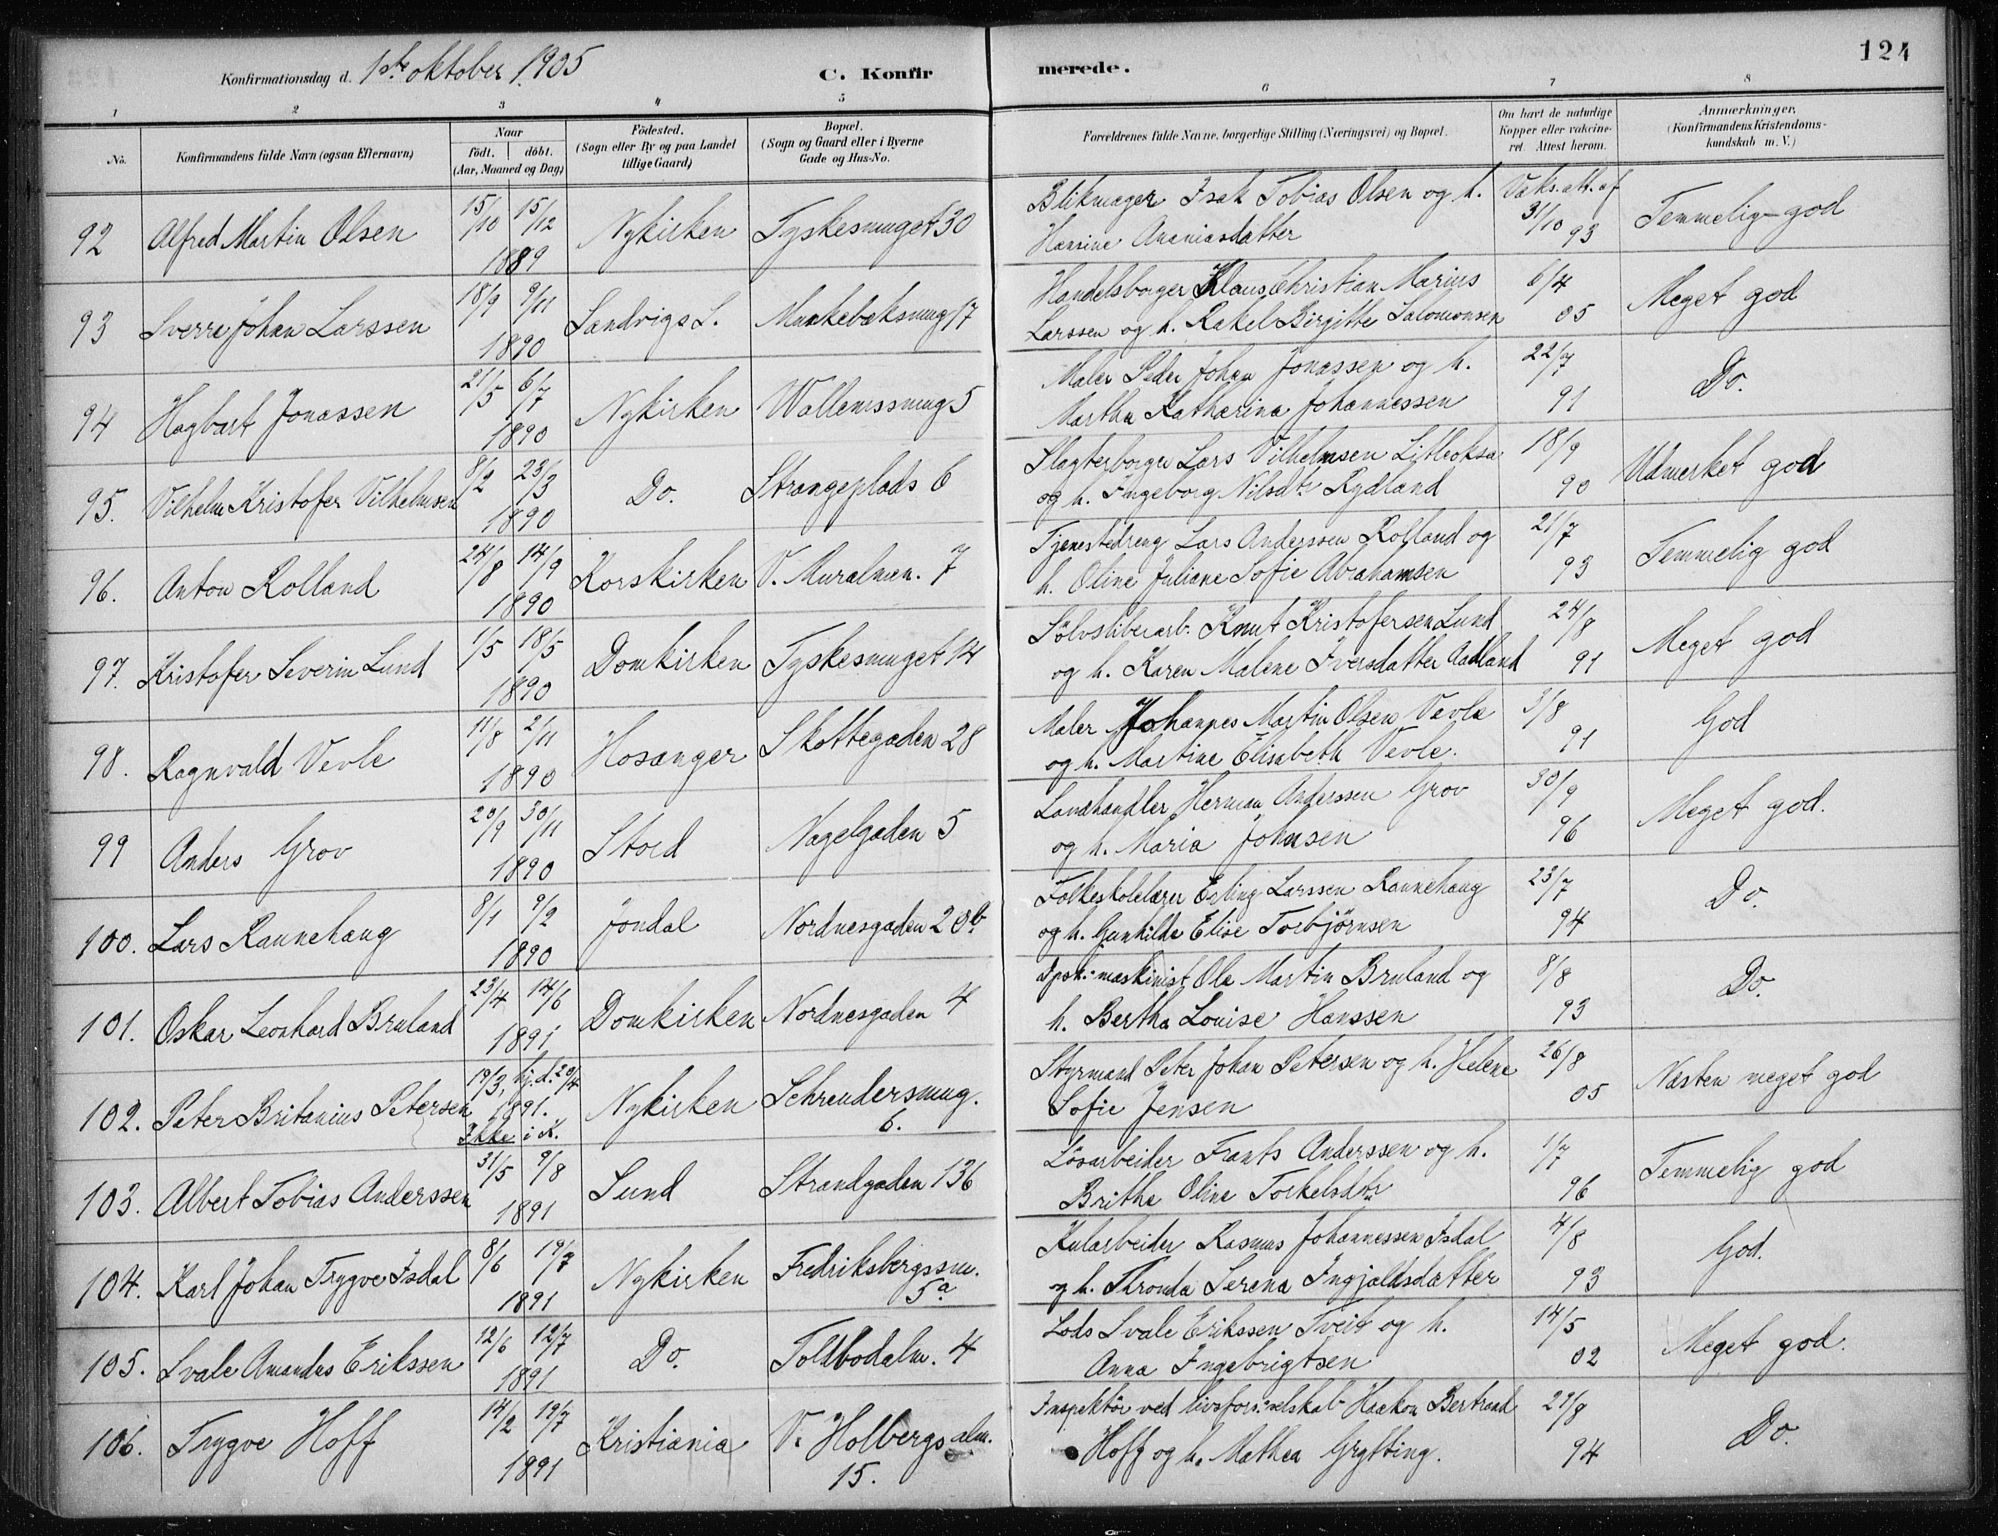 124
Konfirmationsdag d. 1ste oktober 1905 C. Konfir merede.
1 2 3 4 5 6 7 8
No. Konfirmandens fulde Navn (ogsaa Efternavn) Naar født. døbt. (Aar, Maaned og Dag) Fødested. (Sogn eller By og paa Landet tillige Gaard) Bopæl. (Sogn og Gaard eller i Byerne Gade og Hus-No. Forældrenes fulde Navne, borgerlige Stilling (Næringsvei) og Bopæl. Om havt de naturlige Kopper eller vakcineret. Attest herom. Anmærkninger. (Konfirmandens Kristendomskundskab m. V.)
92 Alfred Martin Olsen 15/10 15/12 1889 Nykirken Tyskesmuget 30 Blikmager Isak Tobias Olsen og h. Hansine Ananiasdatter Vaks. att. af 31/10 93 Temmelig god
93 Sverre Johan Larssen 18/9 9/11 1890 Sandvigs S. Munkebæksmug 17 Handelsborger Klaus Christian Marius Larssen og h. Rakel Birgitte Salomonsen 6/4 05 Meget god
94 Hagbart Jonassen 21/5 6/7 1890 Nykirken Wallemssmug 5 Maler Peder Johan Jonassen og h. Martha Katharina Johannessen 22/7 91 Do.
95. Vilhelm Kristofer Vilhelmsen 8/2 23/3 1890 Do. Strangeplads 6 Slagterborger Lars Vilhelmsen Litleoksa og h. Ingeborg Nilsdtr Rydland 18/9 90 Udmerket god
96. Anton Rolland 24/8 14/9 1890 Korskirken V. Muralmen. 7 Tjenestedreng Lars Anderssen Rolland og h. Oline Juliane Sofie Abrahamsen 21/7 93 Temmelig god
97. Kristofer Severin Lund 1/5 18/5 1890 Domkirken Tyskesmuget 14 Sölvsliberarb. Knut Kristofersen Lund og h. Karen Malene Iversdatter Aadland 24/8 91 Meget god
98. Ragnvald Vevle 11/8 2/11 1890 Hosanger Skottegaden 28 Maler Johannes Martin Olsen Vevle og h. Martine Elisabeth Vevle. 3/8 91 God
99 Anders Grov 20/9 30/11 1890 Stord Nagelgaden 5 Landhandler Herman Anderssen Grov og h. Maria Johnsen 30/9 96 Meget god.
100. Lars Rannehaug 8/1 9/2 1890 Jondal Nordnesgaden 20b Folkeskolelærer Erling Larssen Rannehaug og h. Gunhilda Elise Torbjörnsen 23/7 94 Do.
101. Oskar Leonhard Bruland 23/4 14/6 1891 Domkirken Nordnesgaden 4 maskinist Ole Martin Bruland og h. Bertha Louise Hanssen 8/8 93 Do.
102. Peter Britanius Petersen 19/3, hj.d. 20/4 1891. Ikke i K. Nykirken Schreudersmug. 6. Styrmand Peter Johan Petersen og h. Helene Sofie Jensen 26/8 05 Næsten meget god
103. Albert Tobias Anderssen 31/5 9/8 1891 Sund Strandgaden 136 Lösarbeider Frants Anderssen og h. Brithe Oline Torkelsdtr 1/7 96 Temmelig god
104. Karl Johan Trygve Isdal 8/6 19/7 1891 Nykirken Fredriksbergssm. 5a Kularbeider Rasmus Johannessen Isdal og h. Thronda Serena Ingjaldsdatter 4/8 93 God.
105. Svale Amandus Erikssen 12/6 12/7 1891 Do. Toldbodalm. 4 Lods Svale Erikssen Tveit og h. Anna Ingebrigtsen 14/5 02 Meget god.
106. Trygve Hoff 14/2 19/7 1891 Kristiania V. Holbergsalm. 15. Inspektör ved livsfors.selskab Haakon Bertrand Hoff og h. Mathea Grytting. 21/8 94 Do.